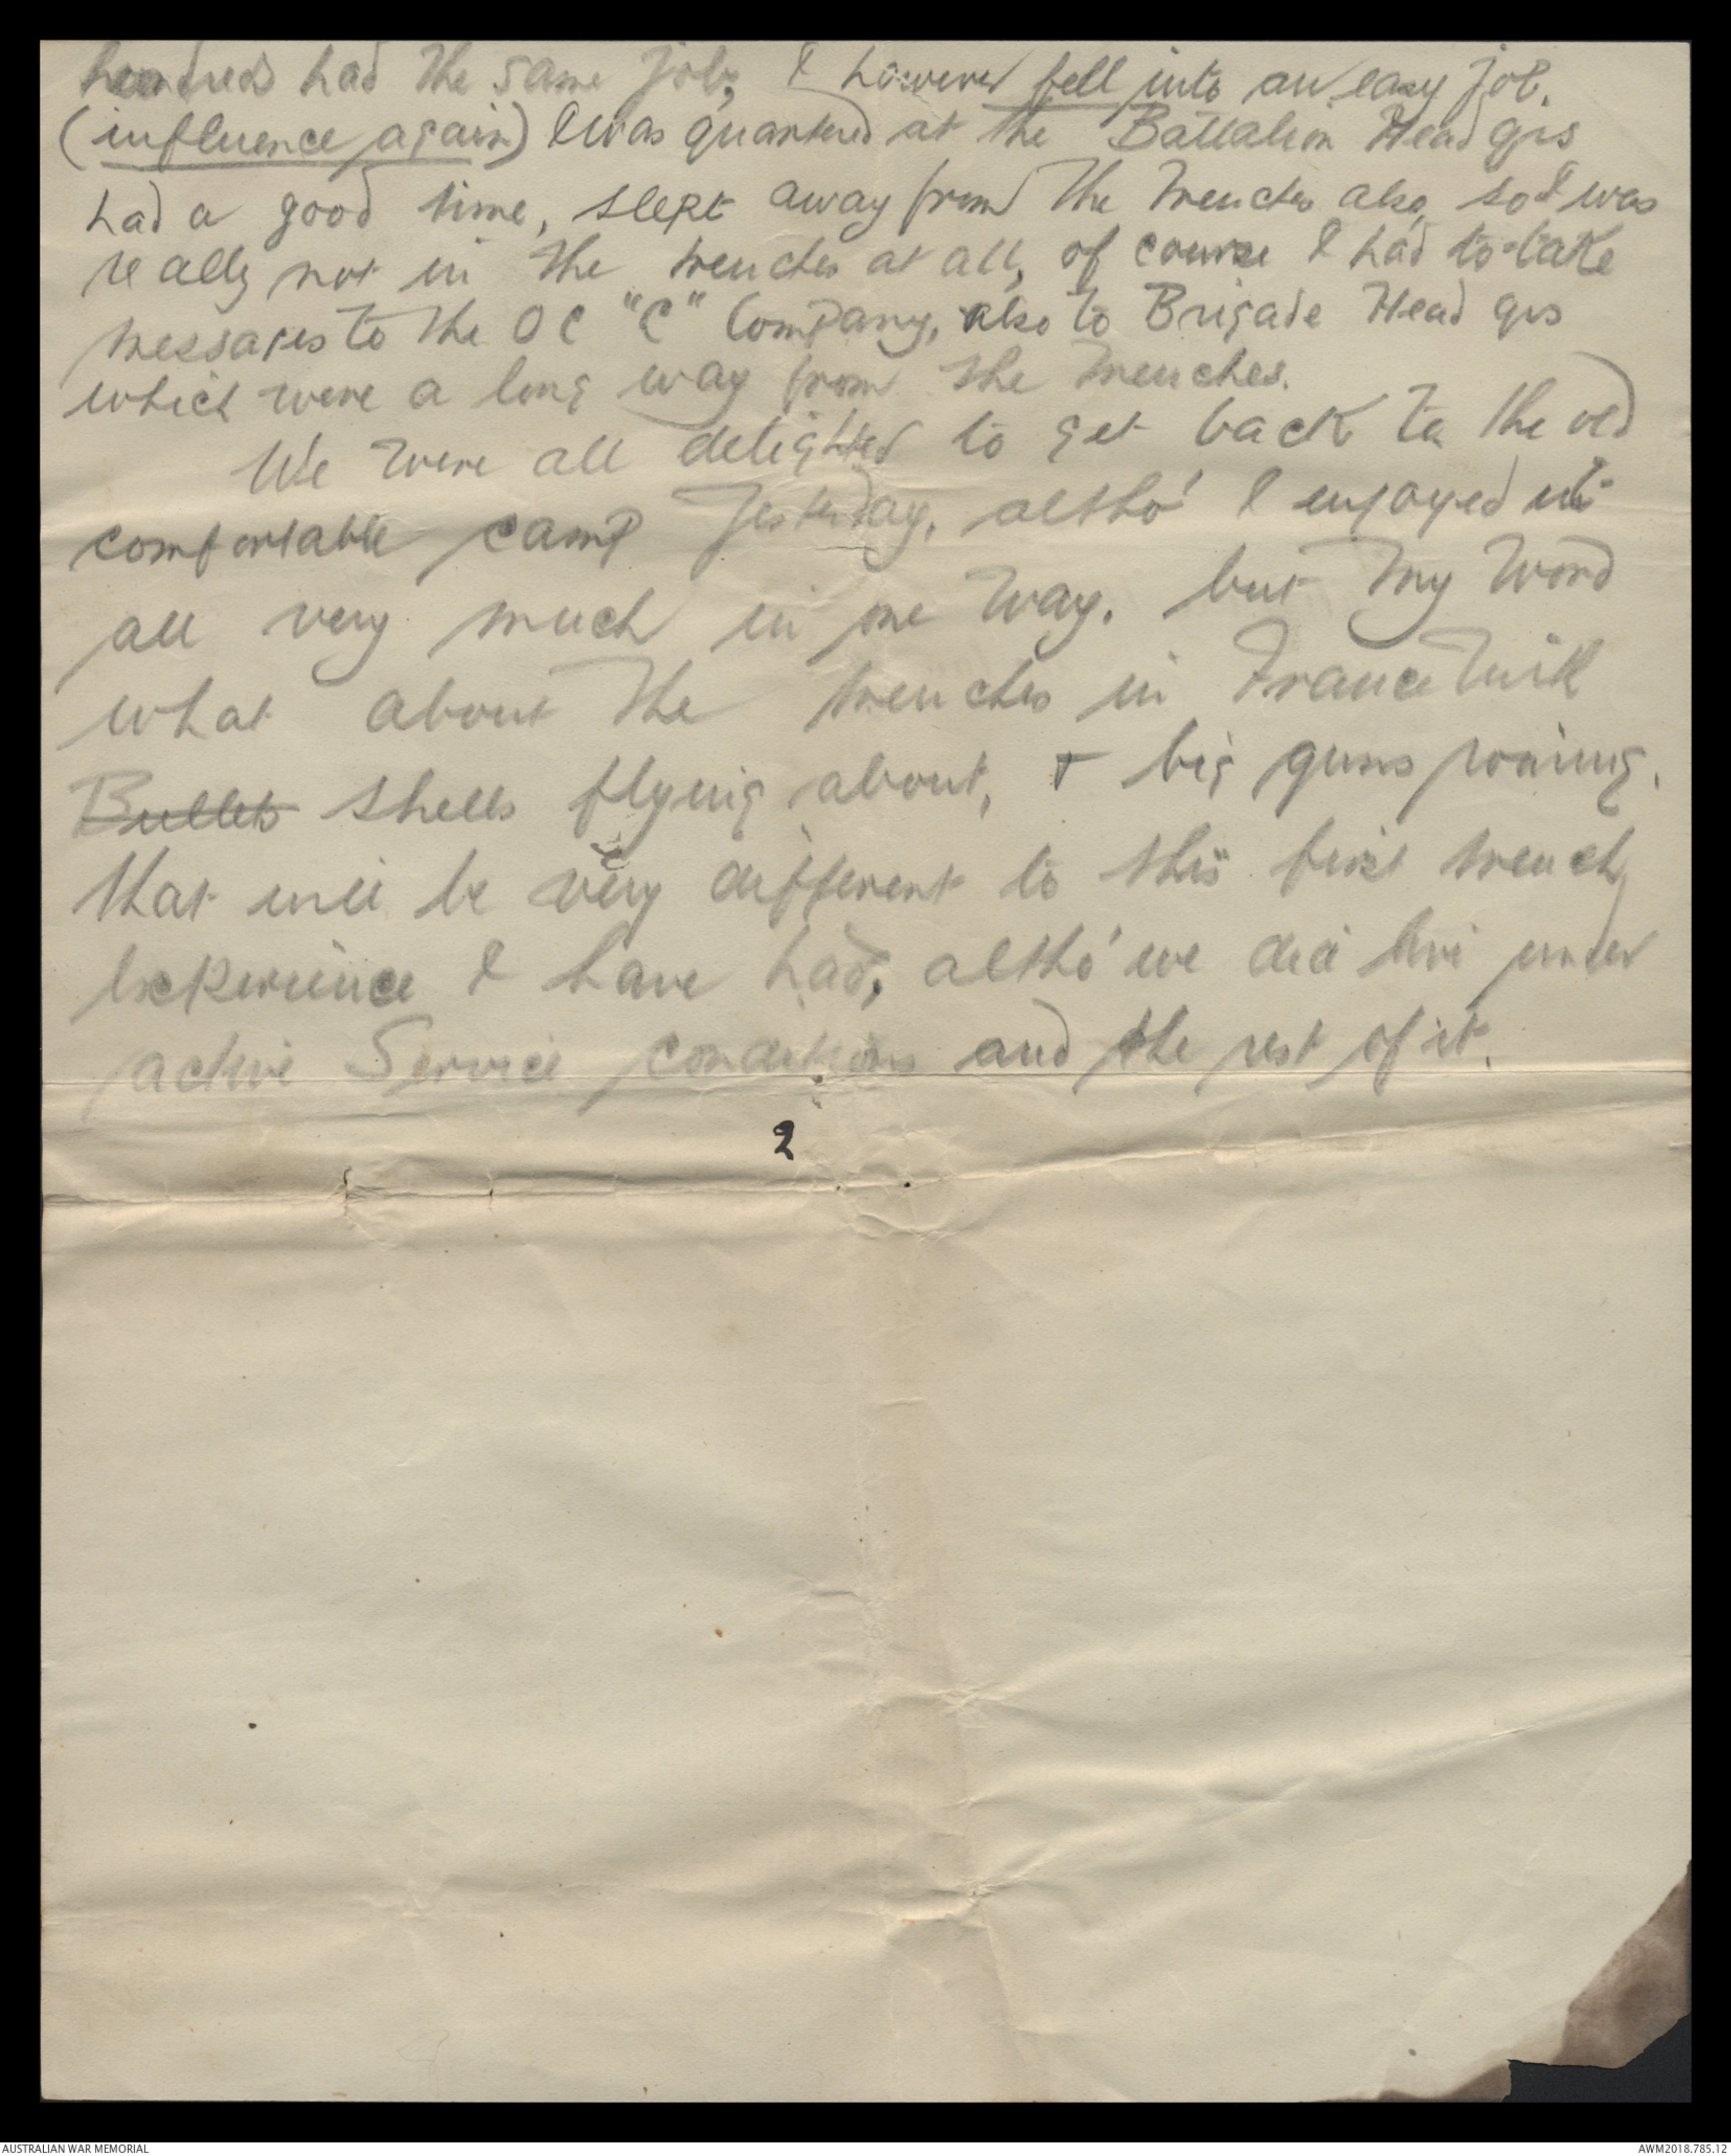 hundreds had the same job, I however fell into an easy job.
(influence again) I was quartered at the Battalion Head qrs
had a good time, slept away from the trenches also, so I was
really not in the trenches at all, of course I had to take
messages to the OC "C" Company, also to Brigade Head qrs
which were a long way from the trenches.
We were all delighted to get back to the old
comfortable camp yesterday, altho' I enjoyed it
all very much in one way. but my word
what about the trenches in France with
Bullets shells flying about, & big guns roaring.
that will be very different to this first trench
experience I have had, altho' we did live under
active Service conditions and the rest of it.
2
AUSTRALIAN WAR MEMORIAL
AWM2018.785.12